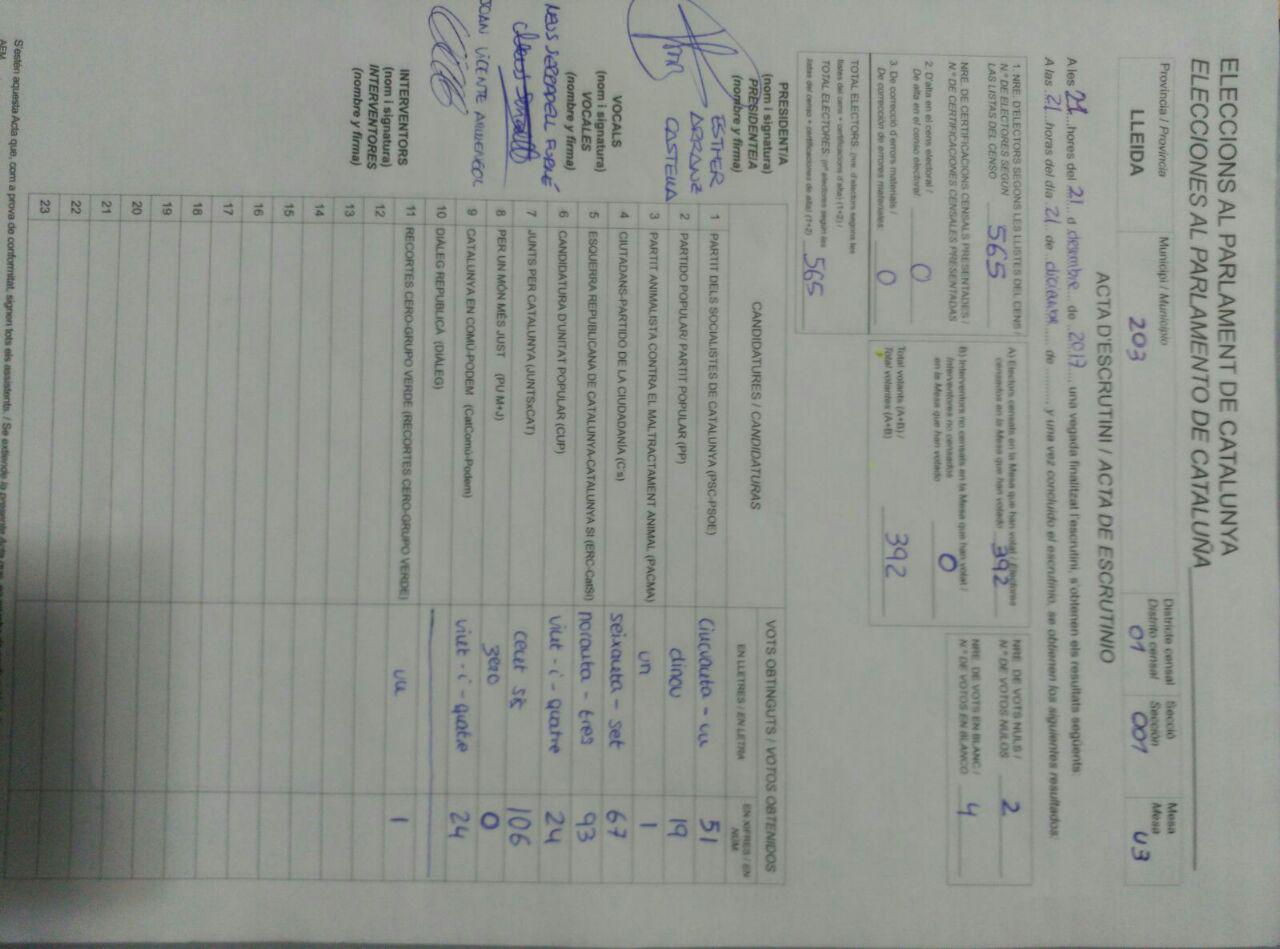 ELECCIONS AL PARLAMENT DE CATALUNYA
ELECCIONES AL PARLAMENTO DE CATALUÑA
Província / Provincia
LLEIDA
Municipi / Municipio
203
Districte censal
Distrito censal
01
Secció
Sección
001
Mesa
Mesa
U3
ACTA D'ESCRUTINI / ACTA DE ESCRUTINIO
A les 21...hores del 21.. d desembre.. de ..2017..., una vegada finalitzat l'escrutini, s'obtenen els resultats següents:
A las .21...horas del día .21. de diciembre..... de ........., y una vez concluido el escrutinio, se obtienen los siguientes resultados:
1. NRE. D'ELECTORS SEGONS LES LLISTES DEL CENS /
N.º DE ELECTORES SEGÚN
LAS LISTAS DEL CENSO 565
NRE. DE CERTIFICACIONS CENSALS PRESENTADES /
N.º DE CERTIFICACIONES CENSALES PRESENTADAS
2. D'alta en el cens electoral /
De alta en el censo electoral: 0
3. De correcció d'errors materials /
De corrección de errores materiales: 0
TOTAL ELECTORS: (nre. d'electors segons les
llistes del cens + certificacions d'alta) (1+2) /
TOTAL ELECTORES: (nº electores según las
listas del censo + certificaciones de alta) (1+2) 565
A) Electors censats en la Mesa que han votat / Electores
censados en la Mesa que han votado 392
B) Interventors no censats en la Mesa que han votat /
Interventores no censados
en la Mesa que han votado 0
Total votants (A+B) /
Total votantes (A+B) 392
NRE. DE VOTS NULS /
N.º DE VOTOS NULOS 2
NRE. DE VOTS EN BLANC /
N.º DE VOTOS EN BLANCO 4
PRESIDENT/A
(nom i signatura)
PRESIDENTE/A
(nombre y firma)
ESTHER
ARRANZ
CASTELLA
VOCALS
(nom i signatura)
VOCALES
(nombre y firma)
NEUS SERRADELL FURNÉ
JOAN VICENTE ARMENGOL
INTERVENTORS
(nom i signatura)
INTERVENTORES
(nombre y firma)
CANDIDATURES / CANDIDATURAS
VOTS OBTINGUTS / VOTOS OBTENIDOS
EN LLETRES / EN LETRA
EN XIFRES / EN
NÚM.
1 PARTIT DELS SOCIALISTES DE CATALUNYA (PSC-PSOE) Cincuanta - un 51
2 PARTIDO POPULAR/ PARTIT POPULAR (PP) dinou 19
3 PARTIT ANIMALISTA CONTRA EL MALTRACTAMENT ANIMAL (PACMA) un 1
4 CIUTADANS-PARTIDO DE LA CIUDADANÍA (C's) seixanta - set 67
5 ESQUERRA REPUBLICANA DE CATALUNYA-CATALUNYA SÍ (ERC-CatSí) noranta - tres 93
6 CANDIDATURA D'UNITAT POPULAR (CUP) vint - i - quatre 24
7 JUNTS PER CATALUNYA (JUNTSxCAT) cent sis 106
8 PER UN MÓN MÉS JUST (PU M+J) zero 0
9 CATALUNYA EN COMÚ-PODEM (CatComú-Podem) vint - i - quatre 24
10 DIÀLEG REPUBLICÀ (DIÀLEG)
11 RECORTES CERO-GRUPO VERDE (RECORTES CERO-GRUPO VERDE) un 1
12
13
14
15
16
17
18
19
20
21
22
23
S'estén aquesta Acta que, com a prova de conformitat, signen tots els assistents. / Se extiende la presente Acta que, en
AEM